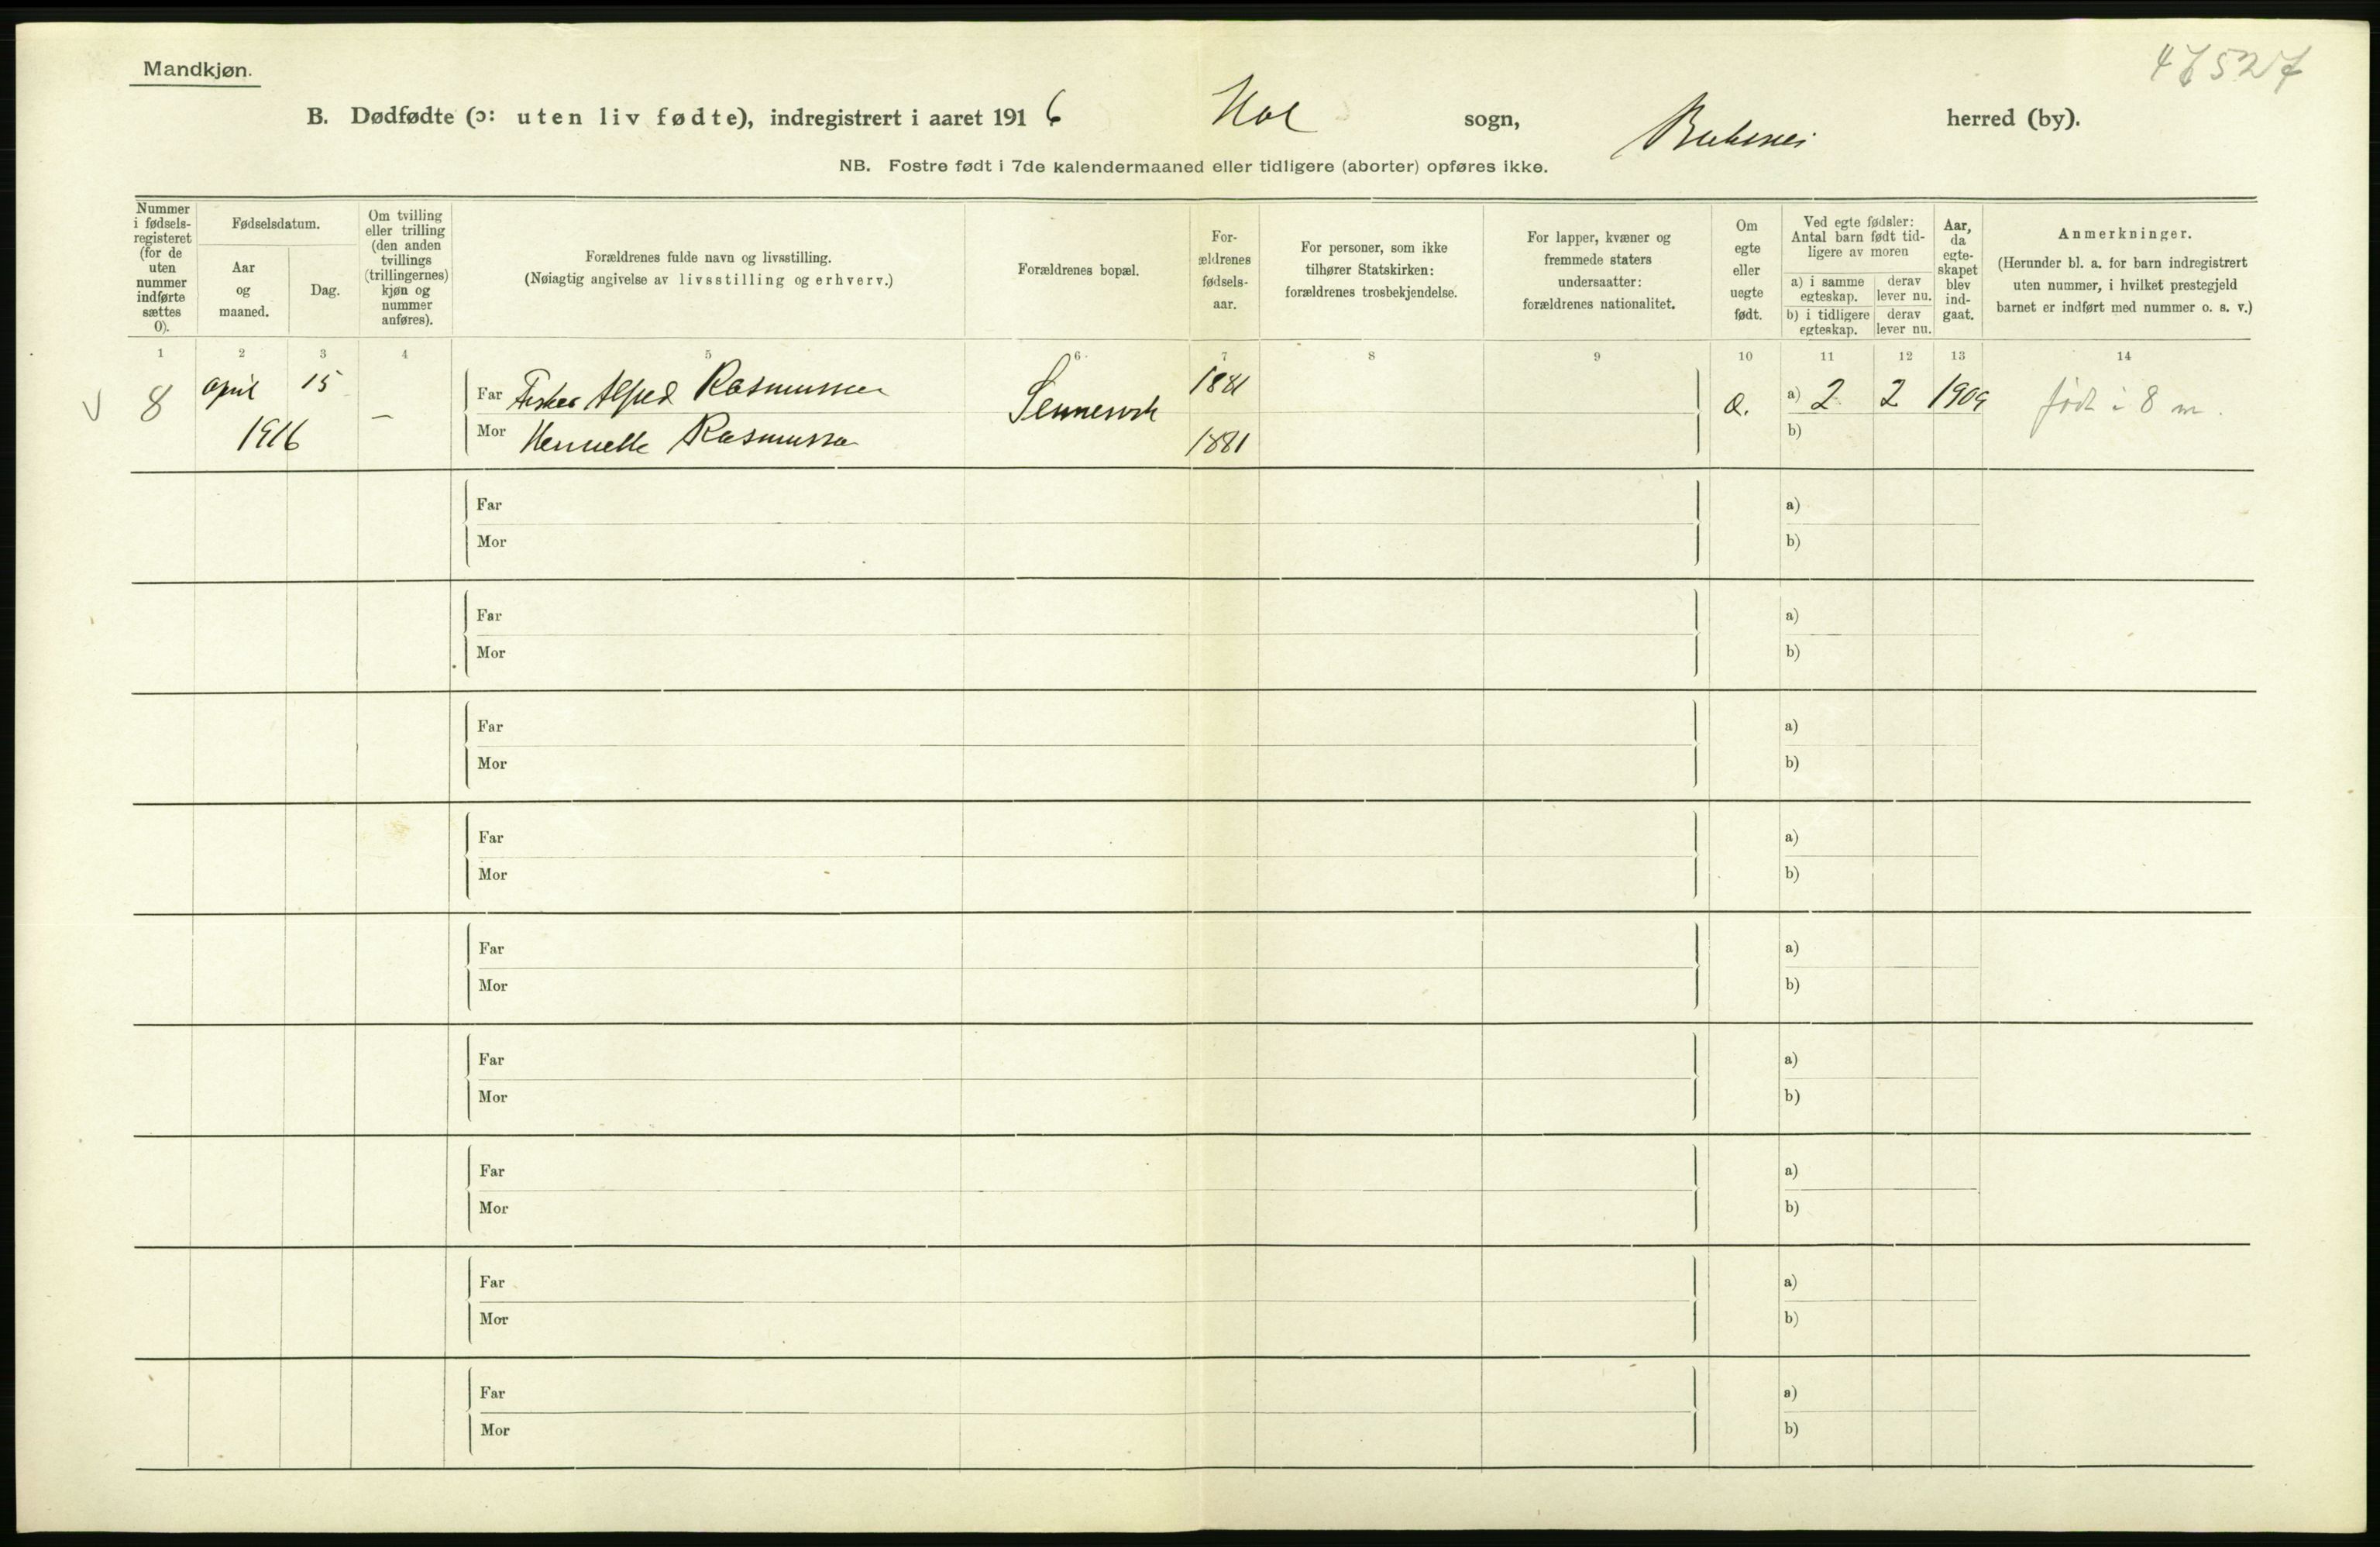 Mandkjøn.
47527
B. Dødfødte (ɔ: uten liv fødte), indregistrert i aaret 1916 Hol sogn, Buksnes herred (by).
NB. Fostre født i 7de kalendermaaned eller tidligere (aborter) opføres ikke.
Nummer i fødsels-registeret (for de uten nummer indførte sættes 0).
Fødselsdatum.
Aar og maaned.
Dag.
Om tvilling eller trilling (den anden tvillings (trillingernes) kjøn og nummer anføres).
Forældrenes fulde navn og livsstilling.
(Nøiagtig angivelse av livsstilling og erhverv.)
Forældrenes bopæl.
For-ældrenes fødsels-aar.
For personer, som ikke tilhører Statskirken: forældrenes trosbekjendelse.
For lapper, kvæner og fremmede staters undersaatter: forældrenes nationalitet.
Om egte eller uegte født.
Ved egte fødsler: Antal barn født tid-ligere av moren
a) i samme egteskap.
derav lever nu.
b) i tidligere egteskap.
derav lever nu.
Aar, da egte-skapet blev ind-gaat.
Anmerkninger.
(Herunder bl. a. for barn indregistrert uten nummer, i hvilket prestegjeld barnet er indført med nummer o. s. v.)
1 2 3 4 5 6 7 8 9 10 11 12 13 14
V 8 april 15 – Far Fisker Alfred Rasmussen 1881 a) 2 2 1909 født i 8 m.
1916 Mor Rasmussen 1881 b)
Far a)
Mor b)
Far a)
Mor b)
Far a)
Mor b)
Far a)
Mor b)
Far a)
Mor b)
Far a)
Mor b)
Far a)
Mor b)
Far a)
Mor b)
Far a)
Mor b)